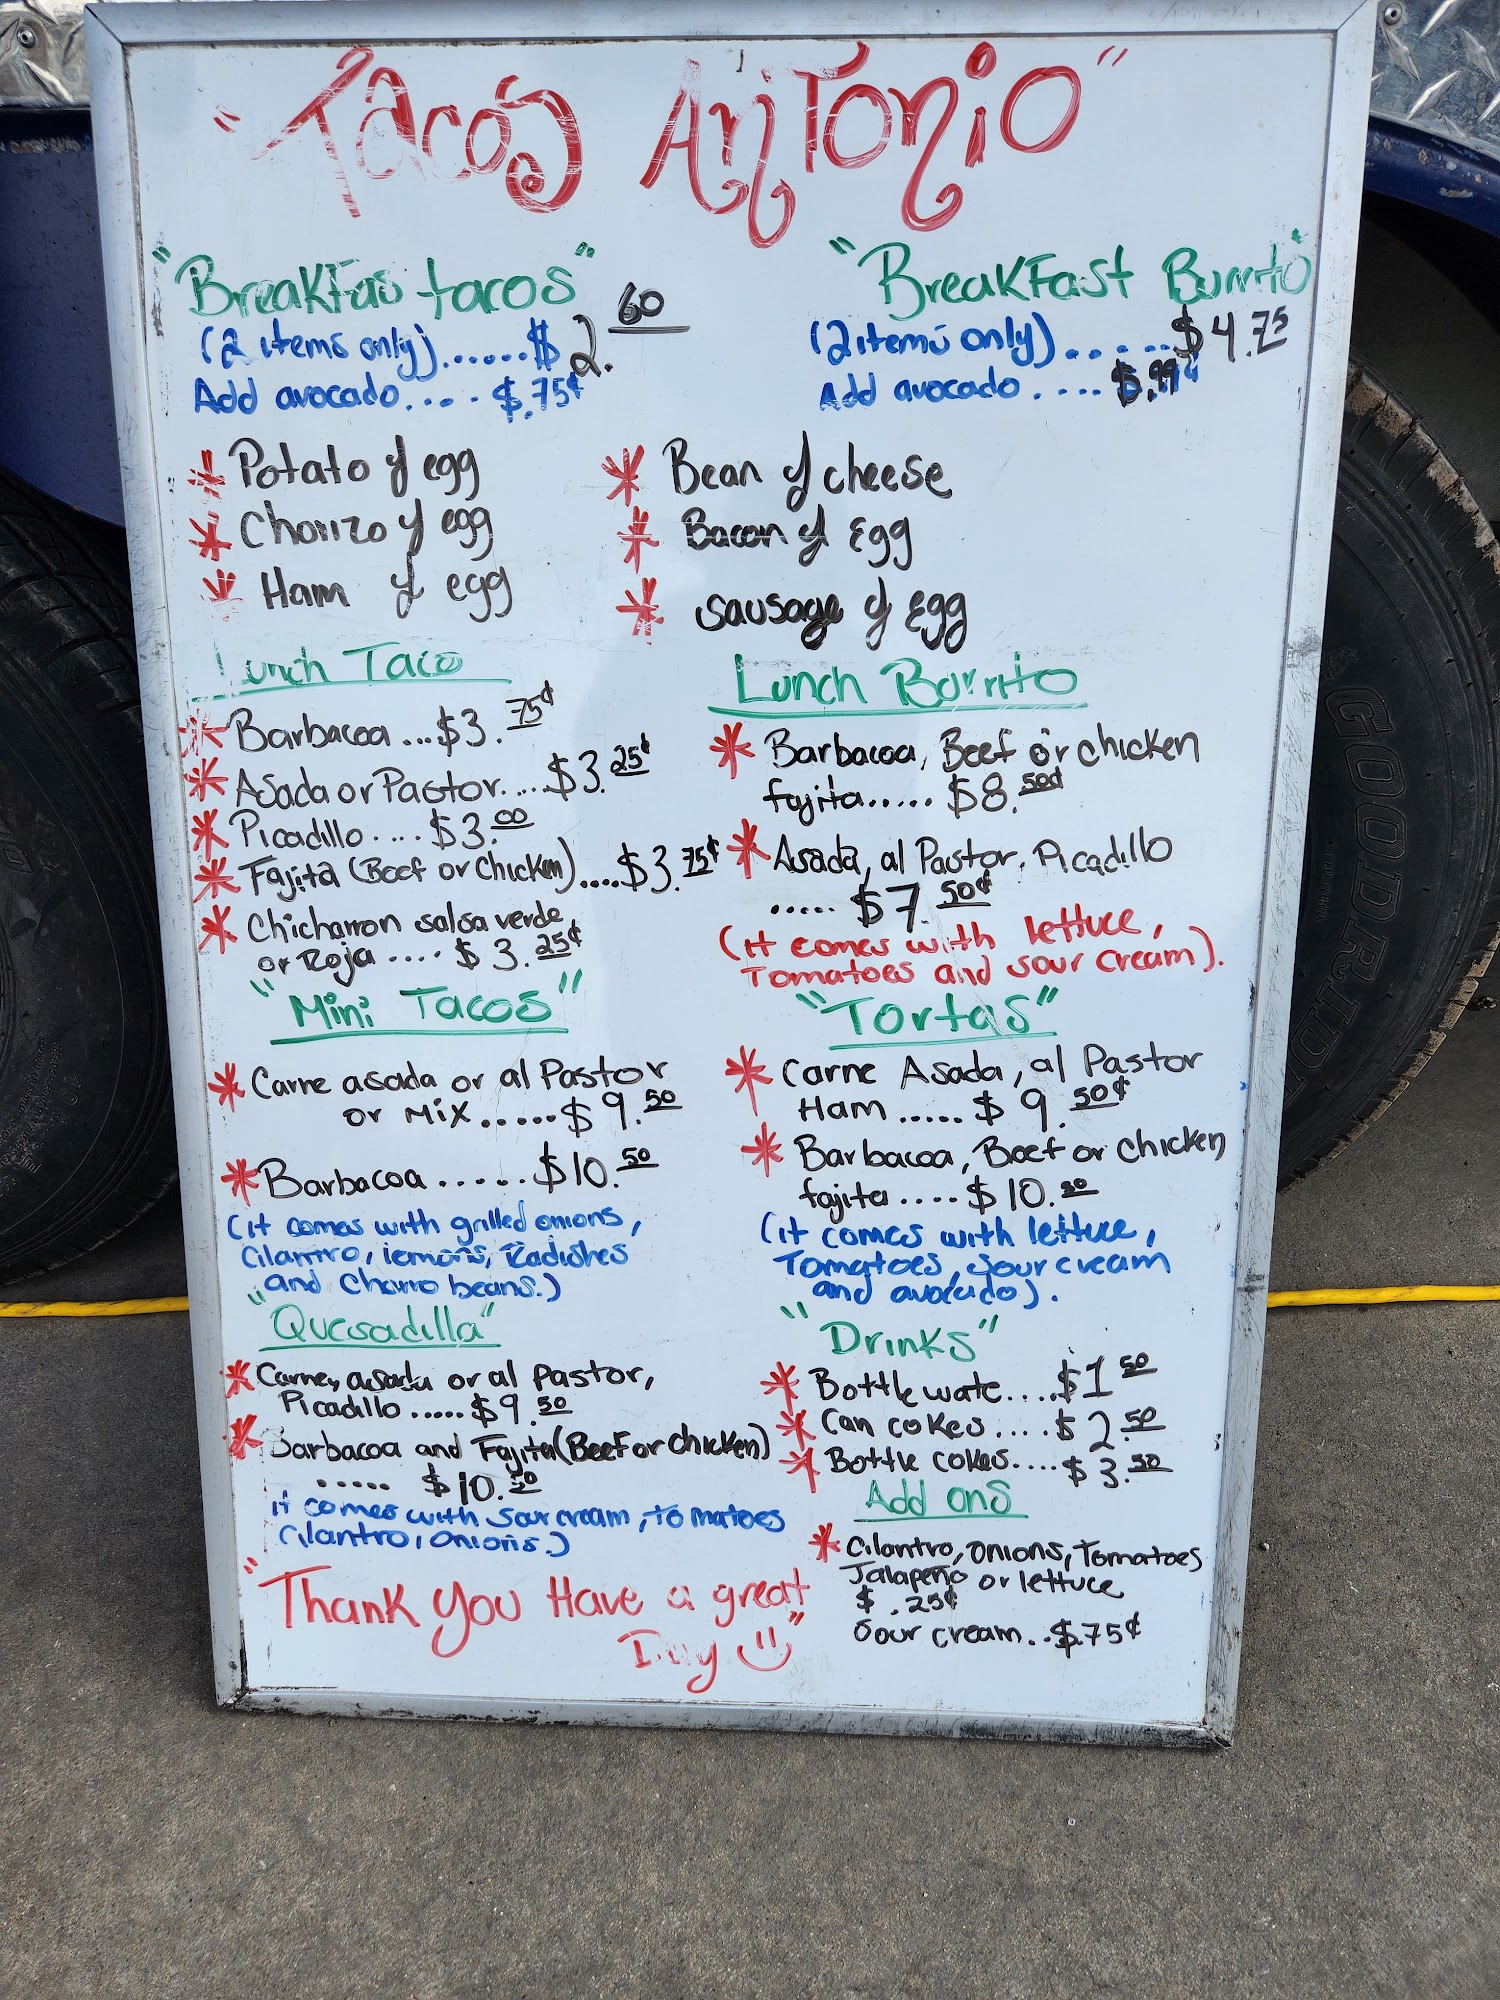 "Tacos Antonio"
"Breakfas tacos"
(2 items only)......$ 2.60
Add avocado.... $.75¢
"Breakfast Burrito"
(2 items only)......$4.75
Add avocado.... $.99¢
* Potato y egg
* Chorizo y egg
* Ham y egg
* Bean y cheese
* Bacon y Egg
* Sausage y Egg
Lunch Taco
* Barbacoa...$3.75¢
* Asada or Pastor....$3.25¢
* Picadillo....$3.00
* Fajita (Beef or Chicken)....$3.75¢
* Chicharron salsa verde
or Roja....$3.25¢
Lunch Borrito
* Barbacoa, Beef or chicken
fajita.....$8.50¢
* Asada, al Pastor, Picadillo
.....$7.50¢
(it comes with lettuce,
Tomatoes and sour cream).
"Mini Tacos"
* Carne asada or al Pastor
or Mix......$9.50
* Barbacoa.....$10.50
(it comes with grilled onions,
Cilantro, lemons, Radishes
and Charro beans.)
"Tortas"
* Carne Asada, al Pastor
Ham.....$9.50¢
* Barbacoa, Beef or Chicken
fajita....$10.50
(it comes with lettuce,
Tomatoes, sour cream
and avocado).
"Quesadilla"
* Carne, asada or al Pastor,
Picadillo.....$9.50
* Barbacoa and Fajita (Beef or chicken)
.....$10.50
it comes with Sour cream, tomatoes
Cilantro, onions.)
"Drinks"
* Bottle wate....$1.50
* Can cokes....$2.50
* Bottle cokes....$3.50
Add ons
* Cilantro, onions, Tomatoes
Jalapeño or lettuce
$.25¢
Sour cream..$.75¢
"Thank you Have a great
Day"
GOODRIDE